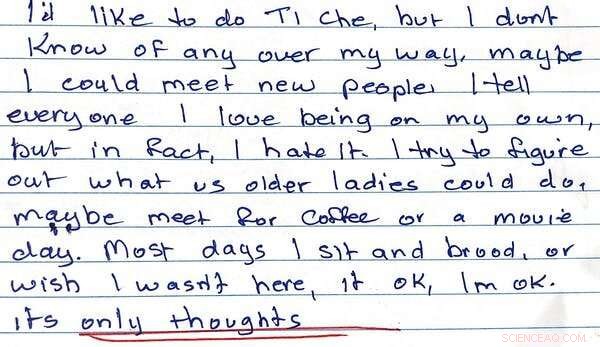 I'd like to do Ti Che, but I dont
know of any over my way, maybe
I could meet new people. I tell
everyone I love being on my own,
but in fact, I hate it. I try to figure
out what us older ladies could do,
maybe meet for coffee or a movie
day. Most days I sit and brood, or
wish I wasn't here, it ok, Im ok.
its only thoughts
SCIENCEAQ.COM